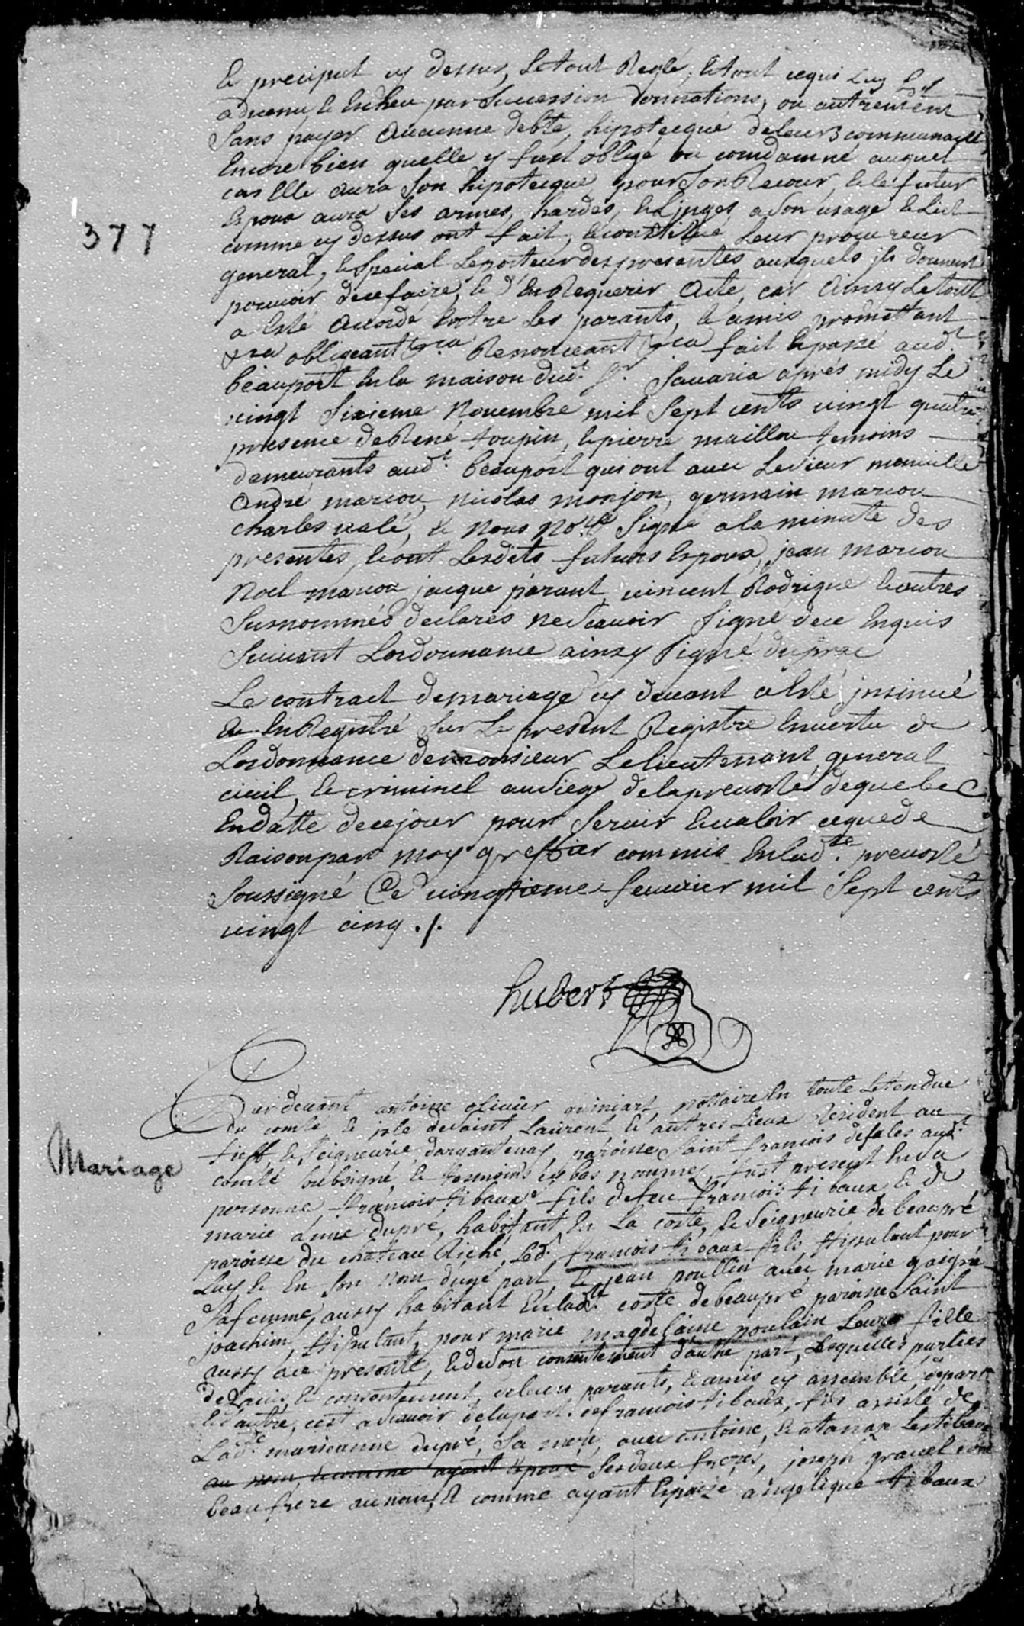 le preciput cy dessus, Letout Reglé, Letout cequi Luy
advenu, et Echeu par Succession donnations, ou autrement
Sans payer Aucunne debte, hipotecque deleurs communauté
Encore bien quelle y fust obligé ou comdamné auquel
cas Elle aura Son hipotecque pour Son Recour, et le futur
Epoux aura Ses armes, hardes, et Linges a Son usage et Lict
377
comme cy dessus ont fait, et constitué Leur procureur
general, et Special Leporteur des presentes auxquels ils donnent
pouvoir decefaire, et d'En Requerir Acte, car Ainsy Letout
a Esté Accordé Entre Les parants, et amis promettant
&ra obligeant &ra Renonceant &ra fait et passé aud.t
beauport En la maison dud.t Sr. Savaria aprés midy Le
vingt Sixieme Novembre mil Sept cents vingt quatre
presence de René toupin, et pierre maillou temoins
demeurants aud.t beauport qui ont avec Lesieur
andre marcou, nicolas monjon, germain marcou
charles valé, et Nous No.re Signé a la minute des
presentes, et ont Lesdits futurs Epoux, jean marcou
Noel marcou, jacque parant, vincent Rodrigue et autres
Surnommés declarés ne Scavoir Signé dece Enquis
Suivant Lordonnance ainsy Signé duprac
Le contract demariage cy devant a Esté jnsinué
et EnRegistré Sur Le present Registre En vertu de
Lordonnance demonsieur Le Lieutenant general
civil, et criminel au Siege dela prevosté dequebec
En datte decejour pour Servir Et valoir ceque de
Raison par moy greffier commis En lad.te prevosté
Soussigné Ce vingtieme fevrier mil Sept cents
vingt cinq ./.
hubert
Mariage
Pardevant antoine olivier quiniart, nottaire En toute Letendue
du comté et jsle de Saint Laurent et autres Lieux Resident au
fieff et Seigneurie dargentenay, paroisse Saint francois desales aud.t
comté Soubsigné, et temoings cy bas nommés, fust present En sa
personne francois tibaux fils defeu francois tibaux, et de
marie anne dupré, habitant En La coste, et Seigneurie de beaupré
paroisse du chateau Riché, Led.t francois tibaux fils, stipulant pour
Luy et En Son nom d'une part, Et jean poullin avec marie gaigné
Sa femme, aussy habitant En lad.te coste de beaupré paroisse Saint
joachim, stipulant, pour marie magdelaine poulain Leure fille
aussy ace presente, et de son consentement d'autre part, Lesquelles parties
de Lavis, Et consentement, de leurs parants, et amis cy assemblé depart
et d'autre, cest a Scavoir delapart de francois tibaux, fils assisté de
Lad.te marieanne dupré, Sa mere, avec antoine, et atanaze
au nom, et comme ayant Epouse Ses deux freres, joseph gravel
beau frere au nom, Et comme ayant Epousé angelique tibaux